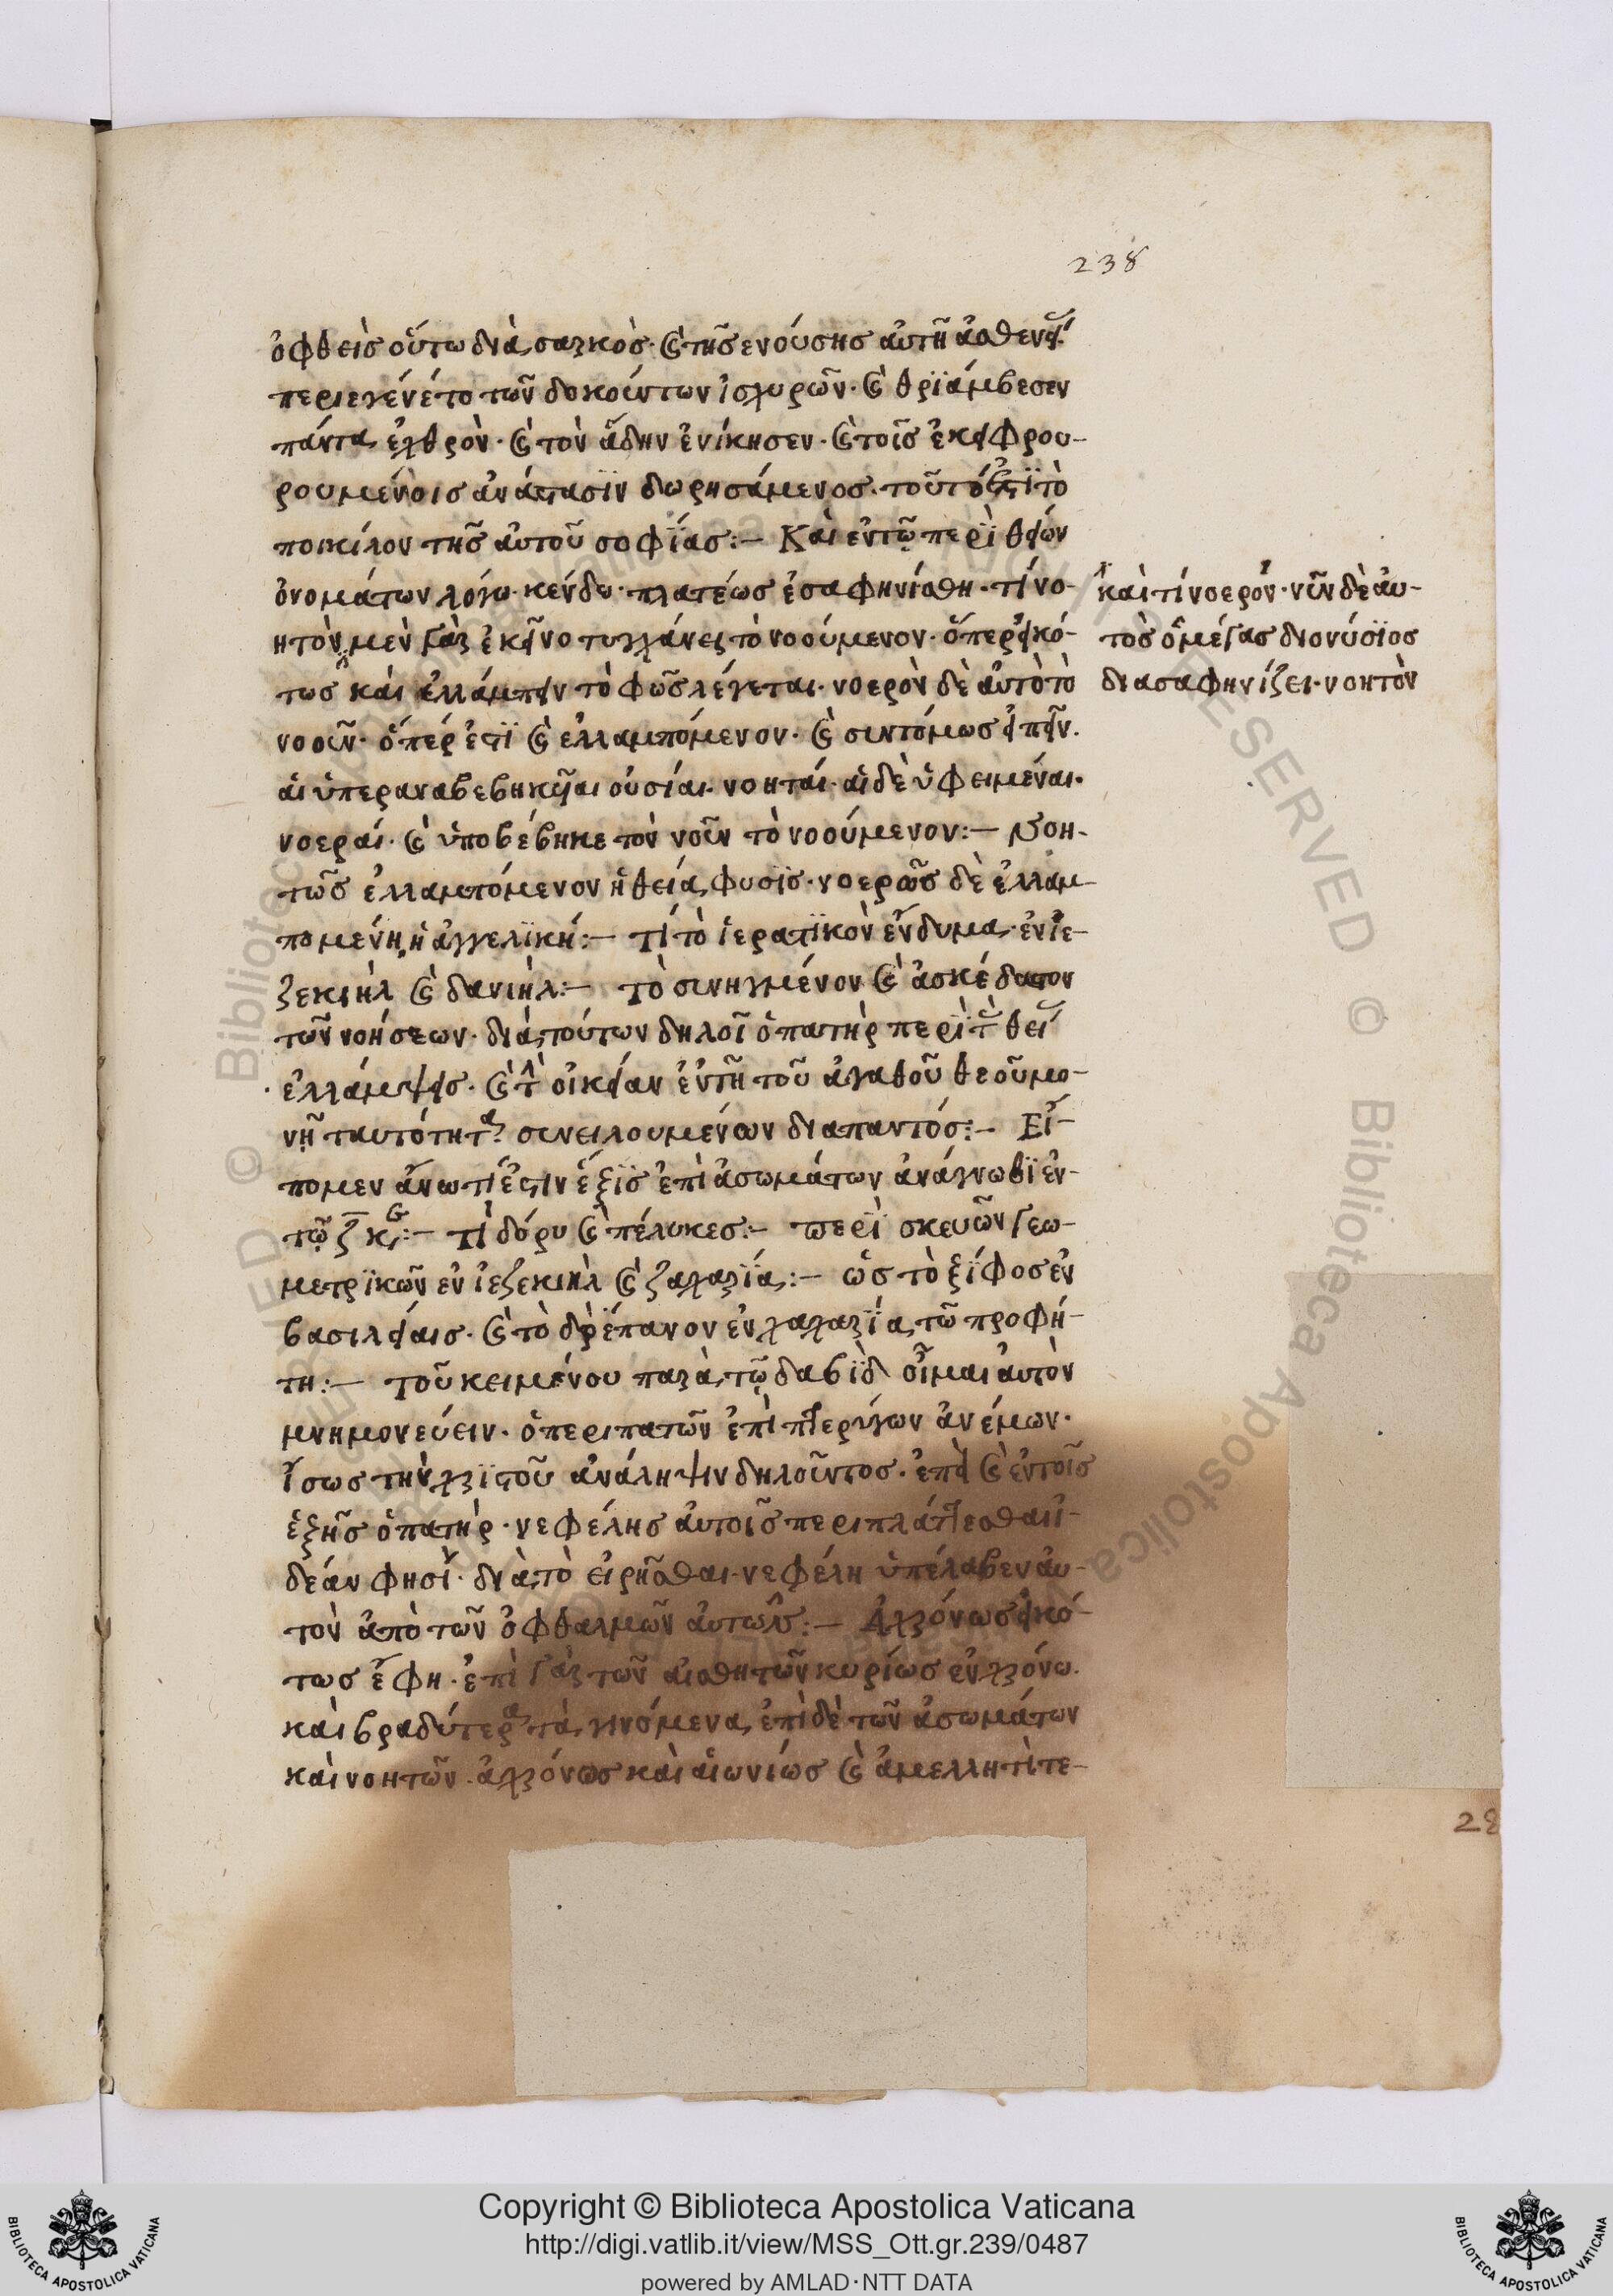 238
ὀφθεὶς οὕτω διὰ σαρκὸς· καὶ τῆς ενούσης αὐτῆ ἀσθενεί
περιεγένέτο τῶν δοκούντων ἰσχυρῶν· καὶ θρϊάμβεσεν
πάντα ἐχθρὸν· καὶ τὸν ἅδην ἐνίκησεν· καὶ τοῖς ἐκεῖ φρου-
ρουμένοις ἀνάστασϊν δωρησάμενος· τοῦτό ἐστϊ τὸ
ποικίλον τῆς ἀυτοῦ σοφΐας:- Καὶ ἐν τῷ περὶ θείων
ὀνομάτων λόγω· κἐνδω· πλατέως ἐσαφηνίσθη· τί νο-
ητὸν μὲν γὰρ ἐκεῖνο τυγχάνει τὸ νοούμενον· ὅπερ εἰκό-
τως καὶ ἐλλάμπειν τὸ φῶς λέγεται· νοερὸν δὲ ἀυτὸ τὸ
νοοῦν· ὅπέρ ἐστϊ καὶ ελλαμπόμενον· καὶ συντόμως εἰπεῖν.
ἁι ὑπεραναβεβηκῆαι οὐσίαι· νοηταί· ἁι δὲ ὑφειμέναι·
νοεραί· καὶ ὑποβέβηκε τὸν νοῦν τὸ νοούμενον:- Νοη-
τῶς ἐλλαμπόμενον ἡ θεία φυσϊς· νοερῶς δὲ ἐλλαμ-
πομένη ἡ ἀγγελϊκή:- Τί τὸ ἱερατϊκὸν ἔνδυμα· ἐν ἰε-
ζεκιὴλ καὶ δανιὴλ:- τὸ συνηγμένον καὶ ἀσκέδαστον
τῶν νοήσεων· διὰ τούτων δηλοῖ ὁ πατὴρ περὶ τὰς θεί
ἐλλάμψεις· καὶ τὴν οἰκείαν ἐν τῆ τοῦ ἀγαθοῦ θεοῦ μο-
νῇ ταυτότητα συνειλουμένων διαπαντός:- Εἴ-
πομεν ἄνω τί ἐστιν ἕξϊς ἐπὶ ἀσωμάτων ἀνάγνωθϊ ἐν
τῷ ζ κε:- τί δόρυ καὶ πέλυκες:- περὶ σκευῶν γεω-
μετρϊκῶν εν ἰεζεκιὴλ καὶ ζαχαρΐα:- ὡς τὸ ξΐφος ἐν
βασιλείαις· καὶ τὸ δρέπανον ἐν ζαχαρΐα τῶ προφή-
τη:- τοῦ κειμένου παρὰ τῷ δαβϊδ οἶμαι ἀυτὸν
μνημονεύειν· ὁ περιπατῶν ἐπὶ πτερύγων ἀνέμων·
ἴσως τὴν χρϊστοῦ ἀνάληψιν δηλοῦντος· ἐπεὶ καὶ ἐν τοῖς
ἑξῆς ὁ πατὴρ· νεφέλης ἀυτοῖς περιπλάττεσθαι ἰ-
δέαν φησὶ· διὰ τὸ εἰρῆσθαι· νεφέλη ὑπέλαβεν ἀυ-
τὸν ἀπὸ τῶν ὀφθαλμῶν ἀυτῶν:- Ἀχρόνως εἰκό-
τως ἔφη· ἐπὶ γὰρ τῶν αἰσθητῶν κυρίως ἐν χρόνω·
καὶ βραδύτερα τὰ γινόμενα ἐπὶ δὲ τῶν ἀσωμάτων
καὶ νοητῶν· ἀχρόνως καὶ ἀιωνίως καὶ ἀμελλητὶ τε-
καὶ τί νοερόν· νῦν δὲ ἀυ-
τὸς ὁ μέγας διονύσϊος
διασαφηνίζει· νοητὸν
28
Copyright © Biblioteca Apostolica Vaticana
http://digi.vatlib.it/view/MSS_Ott.gr.239/0487
powered by AMLAD·NTT DATA
BIBLIOTECA APOSTOLICA VATICANA
BIBLIOTECA APOSTOLICA VATICANA